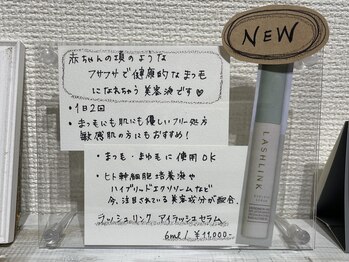 NEW
赤ちゃんの頃のような
フサフサで健康的なまつ毛
になれちゃう美容液です♡
・1日2回
・まつ毛にも肌にも優しいフリー処方
敏感肌の方にもおすすめ!
・まつ毛・まゆ毛に使用OK
・ヒト幹細胞培養液や
ハイブリードエクソソームなど
今、注目されている美容成分が配合。
ラッシュリンク アイラッシュセラム
6ml / ¥11,000-
LASHLINK